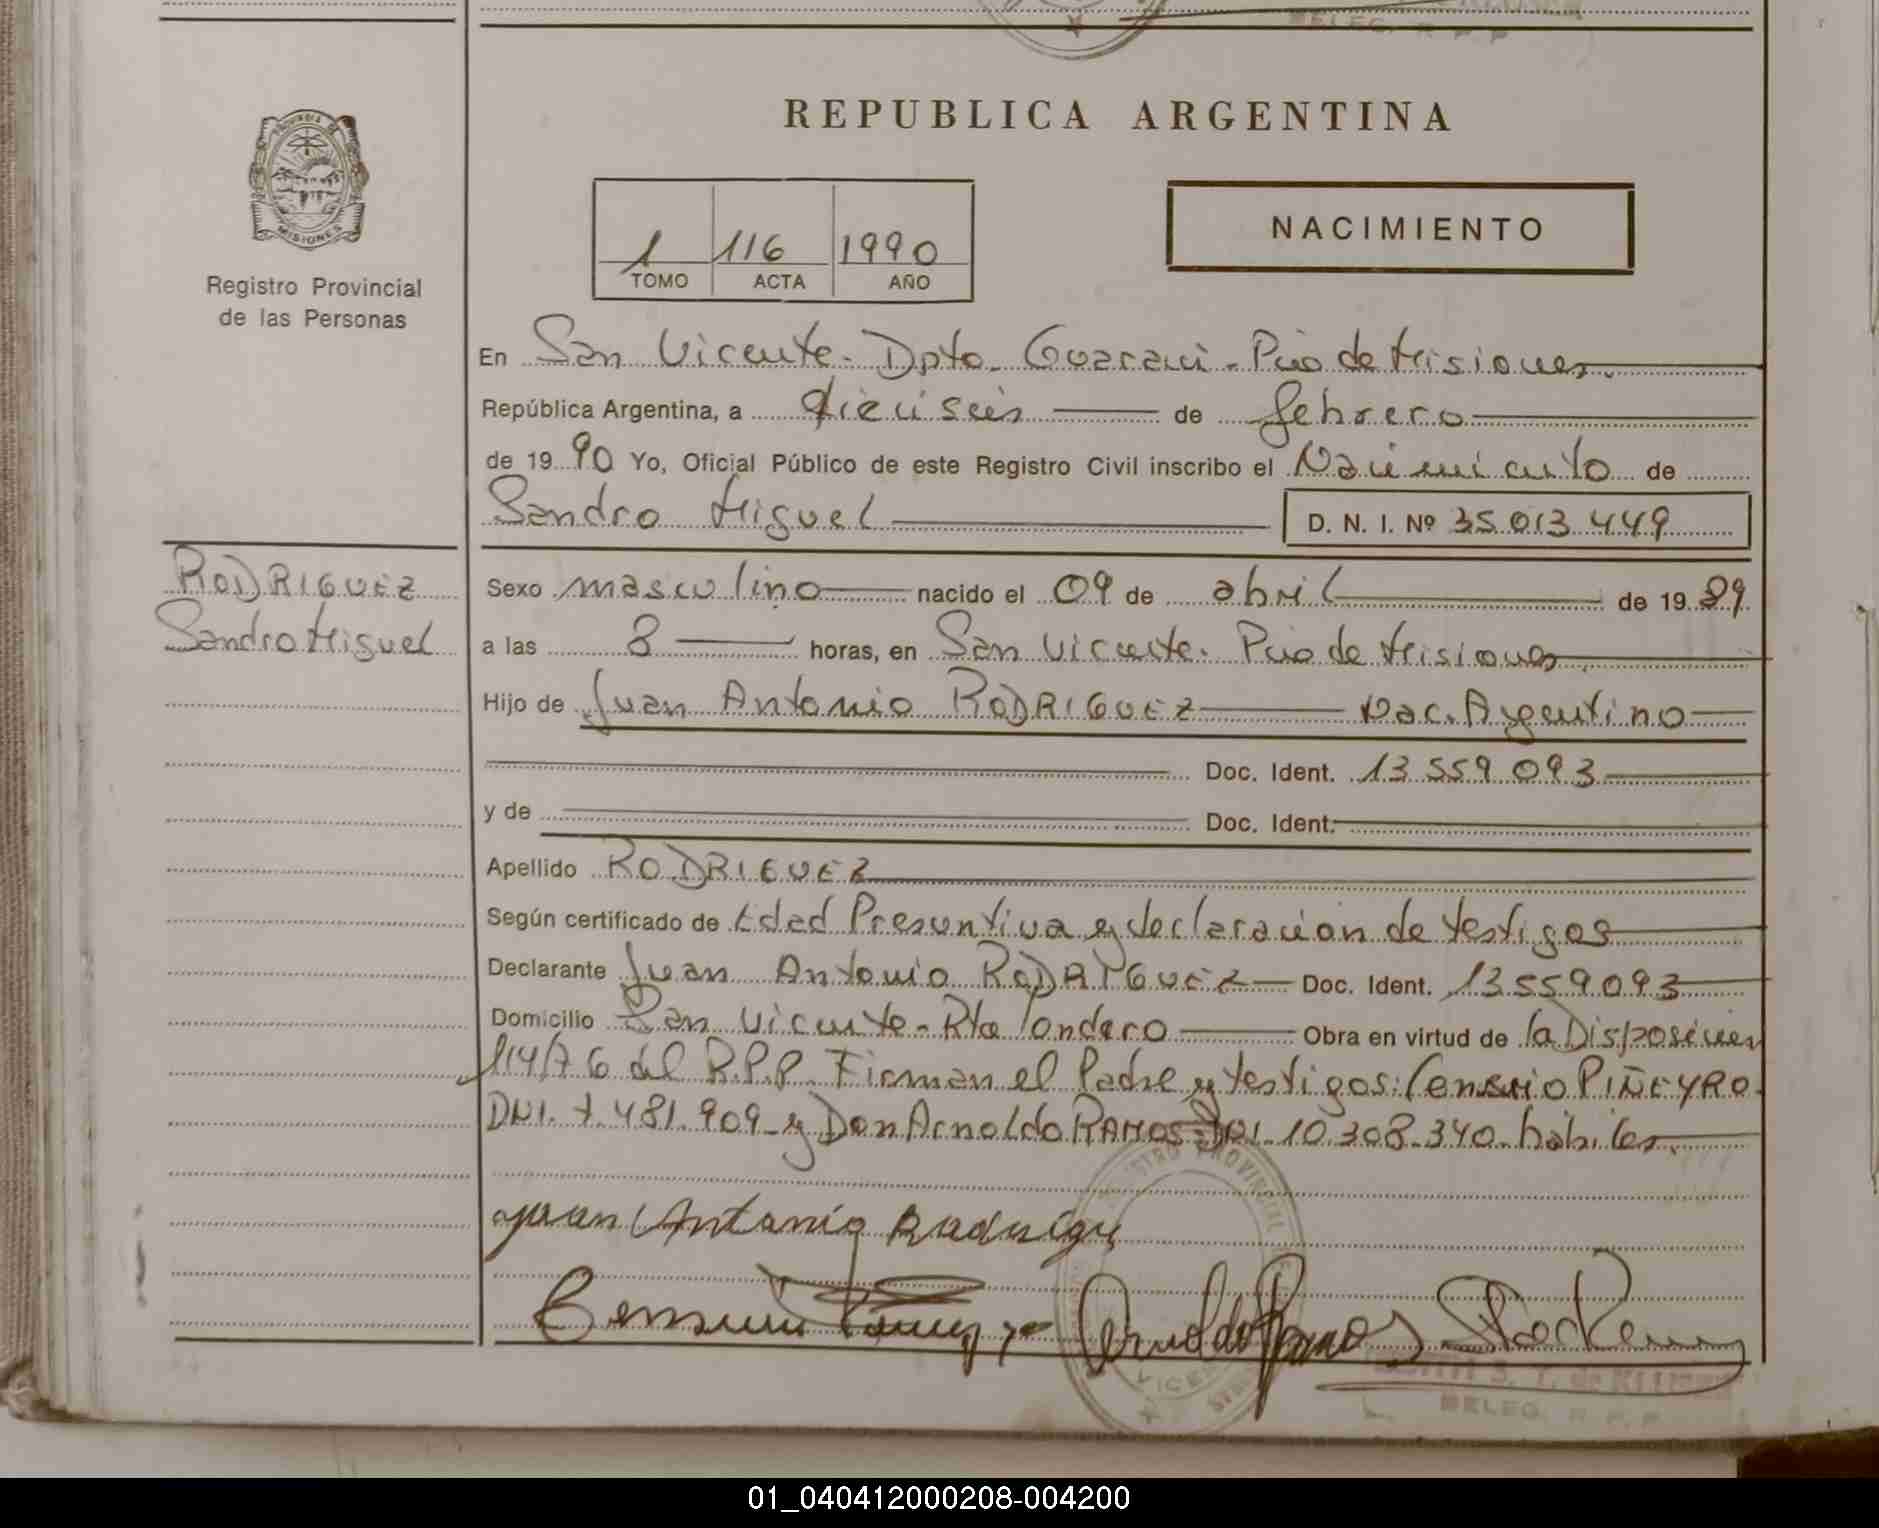 REPUBLICA ARGENTINA
PROVINCIA DE
MISIONES
Registro Provincial
de las Personas
1 116 1990
TOMO ACTA AÑO
NACIMIENTO
En San Vicente - Dpto. Guarani - Pcia de Misiones
República Argentina, a dieciseis de febrero
de 19 90 Yo, Oficial Público de este Registro Civil inscribo el Nacimiento de
Sandro Miguel D. N. I. Nº 35.013.449
RODRIGUEZ
Sandro Miguel
Sexo masculino nacido el 09 de abril de 19 89
a las 8 horas, en San Vicente. Pcia de Misiones
Hijo de Juan Antonio RODRIGUEZ Nac. Argentino
Doc. Ident. 13 559 093
y de Doc. Ident.
Apellido RODRIGUEZ
Según certificado de Edad Presuntiva y declaracion de testigos
Declarante Juan Antonio RODRIGUEZ Doc. Ident. 13559093
Domicilio San Vicente - Rta Londero Obra en virtud de la Disposicion
114/76 del R.P.P. Firman el Padre y testigos: Censrio PIÑEYRO.
DNI. 7.481.909 y Don Arnoldo RAMOS DNI 10.308.340 hábiles.
Juan Antonio Rodrigu
Arnoldo Ramos
DELEG. R. P. P.
01_040412000208-004200